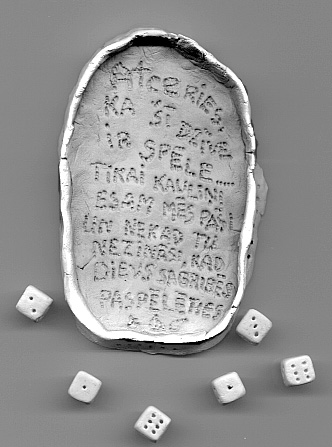 Atceries,
KA ŠĪ DZĪVE
ir SPĒLE.....
TIKAI KAULIŅI
ESAM MĒS PAŠI,
UN NEKAD TU
NEZINĀSI, KAD
DIEVS SAGRIBĒS
PASPĒLĒTIES